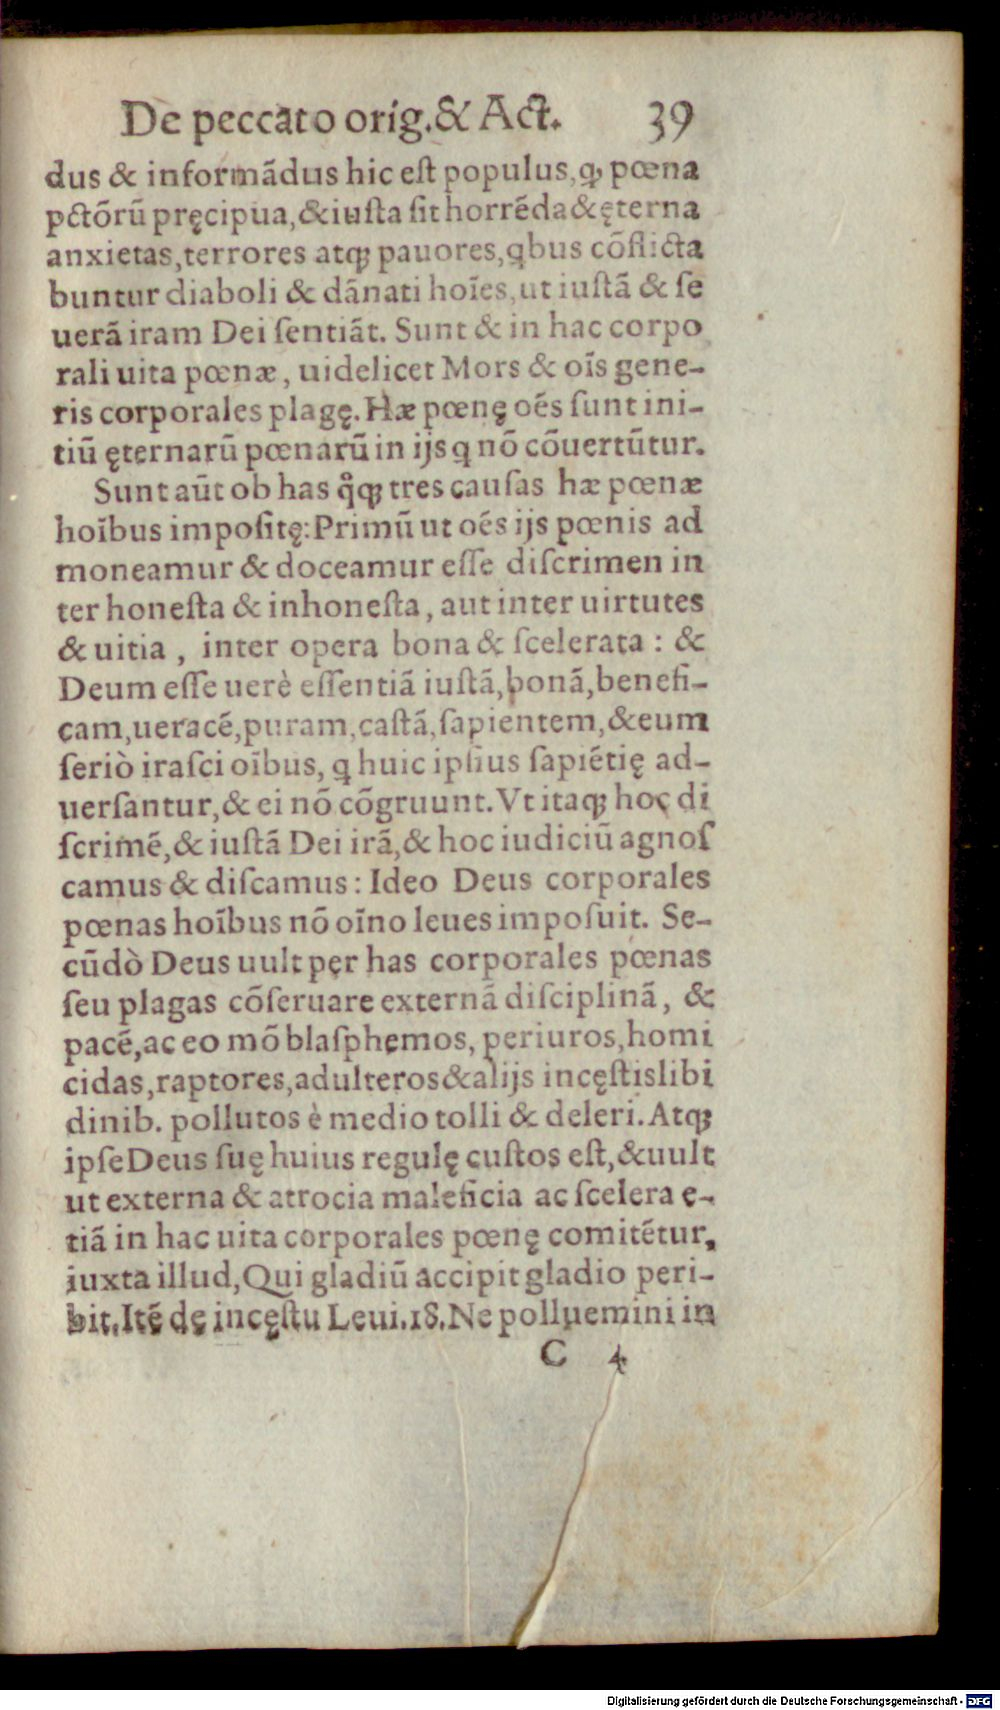 De peccato orig. & Act. 39
dus & informãdus hic eſt populus, ꝙ pœna
pctõrũ pręcipua, & iuſta ſit horrẽda & ęterna
anxietas, terrores atqꝫ pauores, qbus cõflicta
buntur diaboli & dãnati hoĩes, ut iuſtã & ſe
uerã iram Dei ſentiãt. Sunt & in hac corpo
rali uita pœnæ, uidelicet Mors & oĩs gene-
ris corporales plagę. Hæ pœnę oẽs ſunt ini-
tiũ ęternarũ pœnarũ in ijs q nõ cõuertũtur.
Sunt aũt ob has qͦqꝫ tres cauſas hæ pœnæ
hoĩbus impoſitę: Primũ ut oẽs ijs pœnis ad
moneamur & doceamur eſſe diſcrimen in
ter honeſta & inhoneſta, aut inter uirtutes
& uitia, inter opera bona & ſcelerata: &
Deum eſſe uerè eſſentiã iuſtã, bonã, benefi-
cam, ueracẽ, puram, caſtã, ſapientem, & eum
ſeriò iraſci oĩbus, q huic ipſius ſapiẽtię ad-
uerſantur, & ei nõ cõgruunt. Vt itaqꝫ hoc di
ſcrimẽ, & iuſtã Dei irã, & hoc iudiciũ agnoſ
camus & diſcamus: Ideo Deus corporales
pœnas hoĩbus nõ oĩno leues impoſuit. Se-
cũdò Deus uult per has corporales pœnas
ſeu plagas cõſeruare externã diſciplinã, &
pacẽ, ac eo mõ blaſphemos, periuros, homi
cidas, raptores, adulteros & alijs incęſtis libi
dinib. pollutos è medio tolli & deleri. Atqꝫ
ipſe Deus ſuę huius regulę cuſtos eſt, & uult
ut externa & atrocia maleficia ac ſcelera e-
tiã in hac uita corporales pœnę comitẽtur,
iuxta illud, Qui gladiũ accipit gladio peri-
bit. Itẽ de incęſtu Leui. 18. Ne polluemini in
C 4
Digitalisierung gefördert durch die Deutsche Forschungsgemeinschaft - DFG